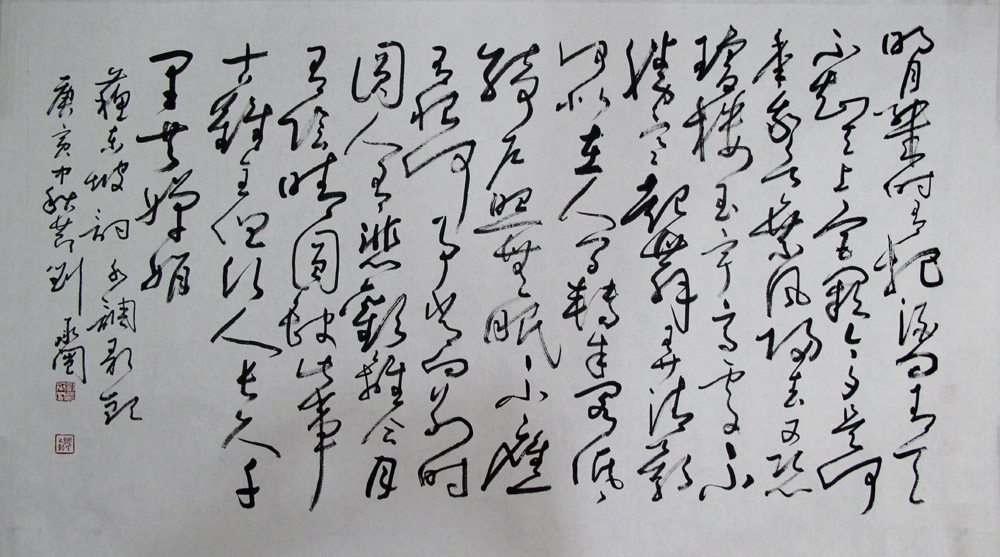 明月幾时有把酒问青天
不知天上宫闕今夕是何
年我欲乘风歸去又恐
瓊樓玉宇高处不
勝寒起舞弄清影
何似在人间轉朱阁低
綺户照無眠不應
有恨何事长向别时
圆人有悲歡離合月
有陰晴圆缺此事
古難全但願人长久千
里共嬋娟
蘇东坡词水调歌頭
庚寅中秋节刘